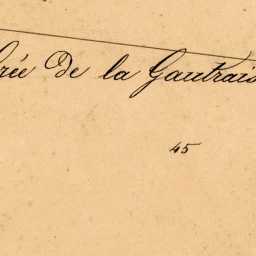 rée De la Gautrais
45